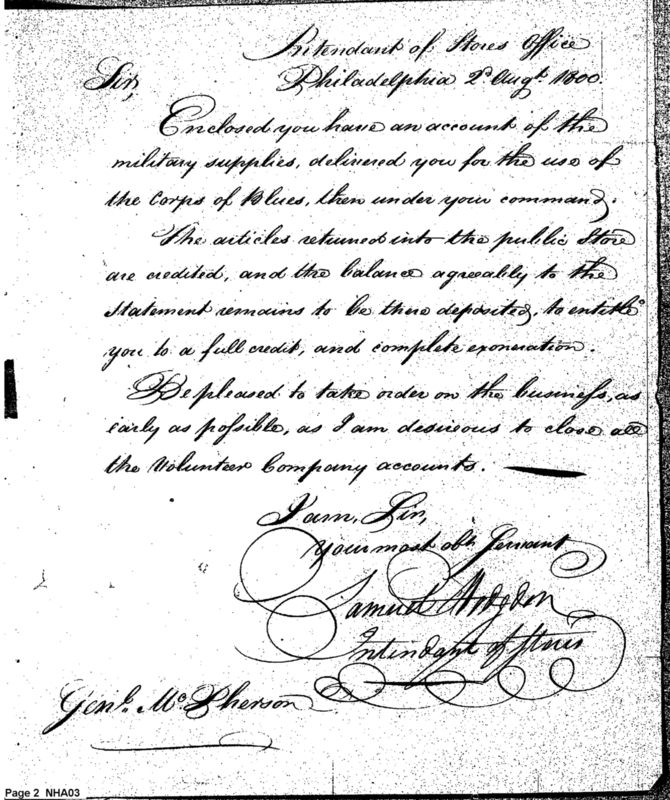 Intendant of Stores Office
Sir, Philadelphia 2d. Augt. 1800.
Enclosed you have an account of the
military supplies, delivered you for the use of
the Corps of Blues, then under your command.
The articles returned into the public Store
are credited, and the balance agreeably to the
statement remains to be there deposited, to entitle
you to a full credit, and complete exoneration.
Be pleased to take order on the business, as
early as possible, as I am desireous to close all
the Volunteer Company accounts.
I am, Sir,
your most obt. Servant
Samuel Hodgdon
Intendant of Stores
Genl. McPherson
Page 2 NHA03